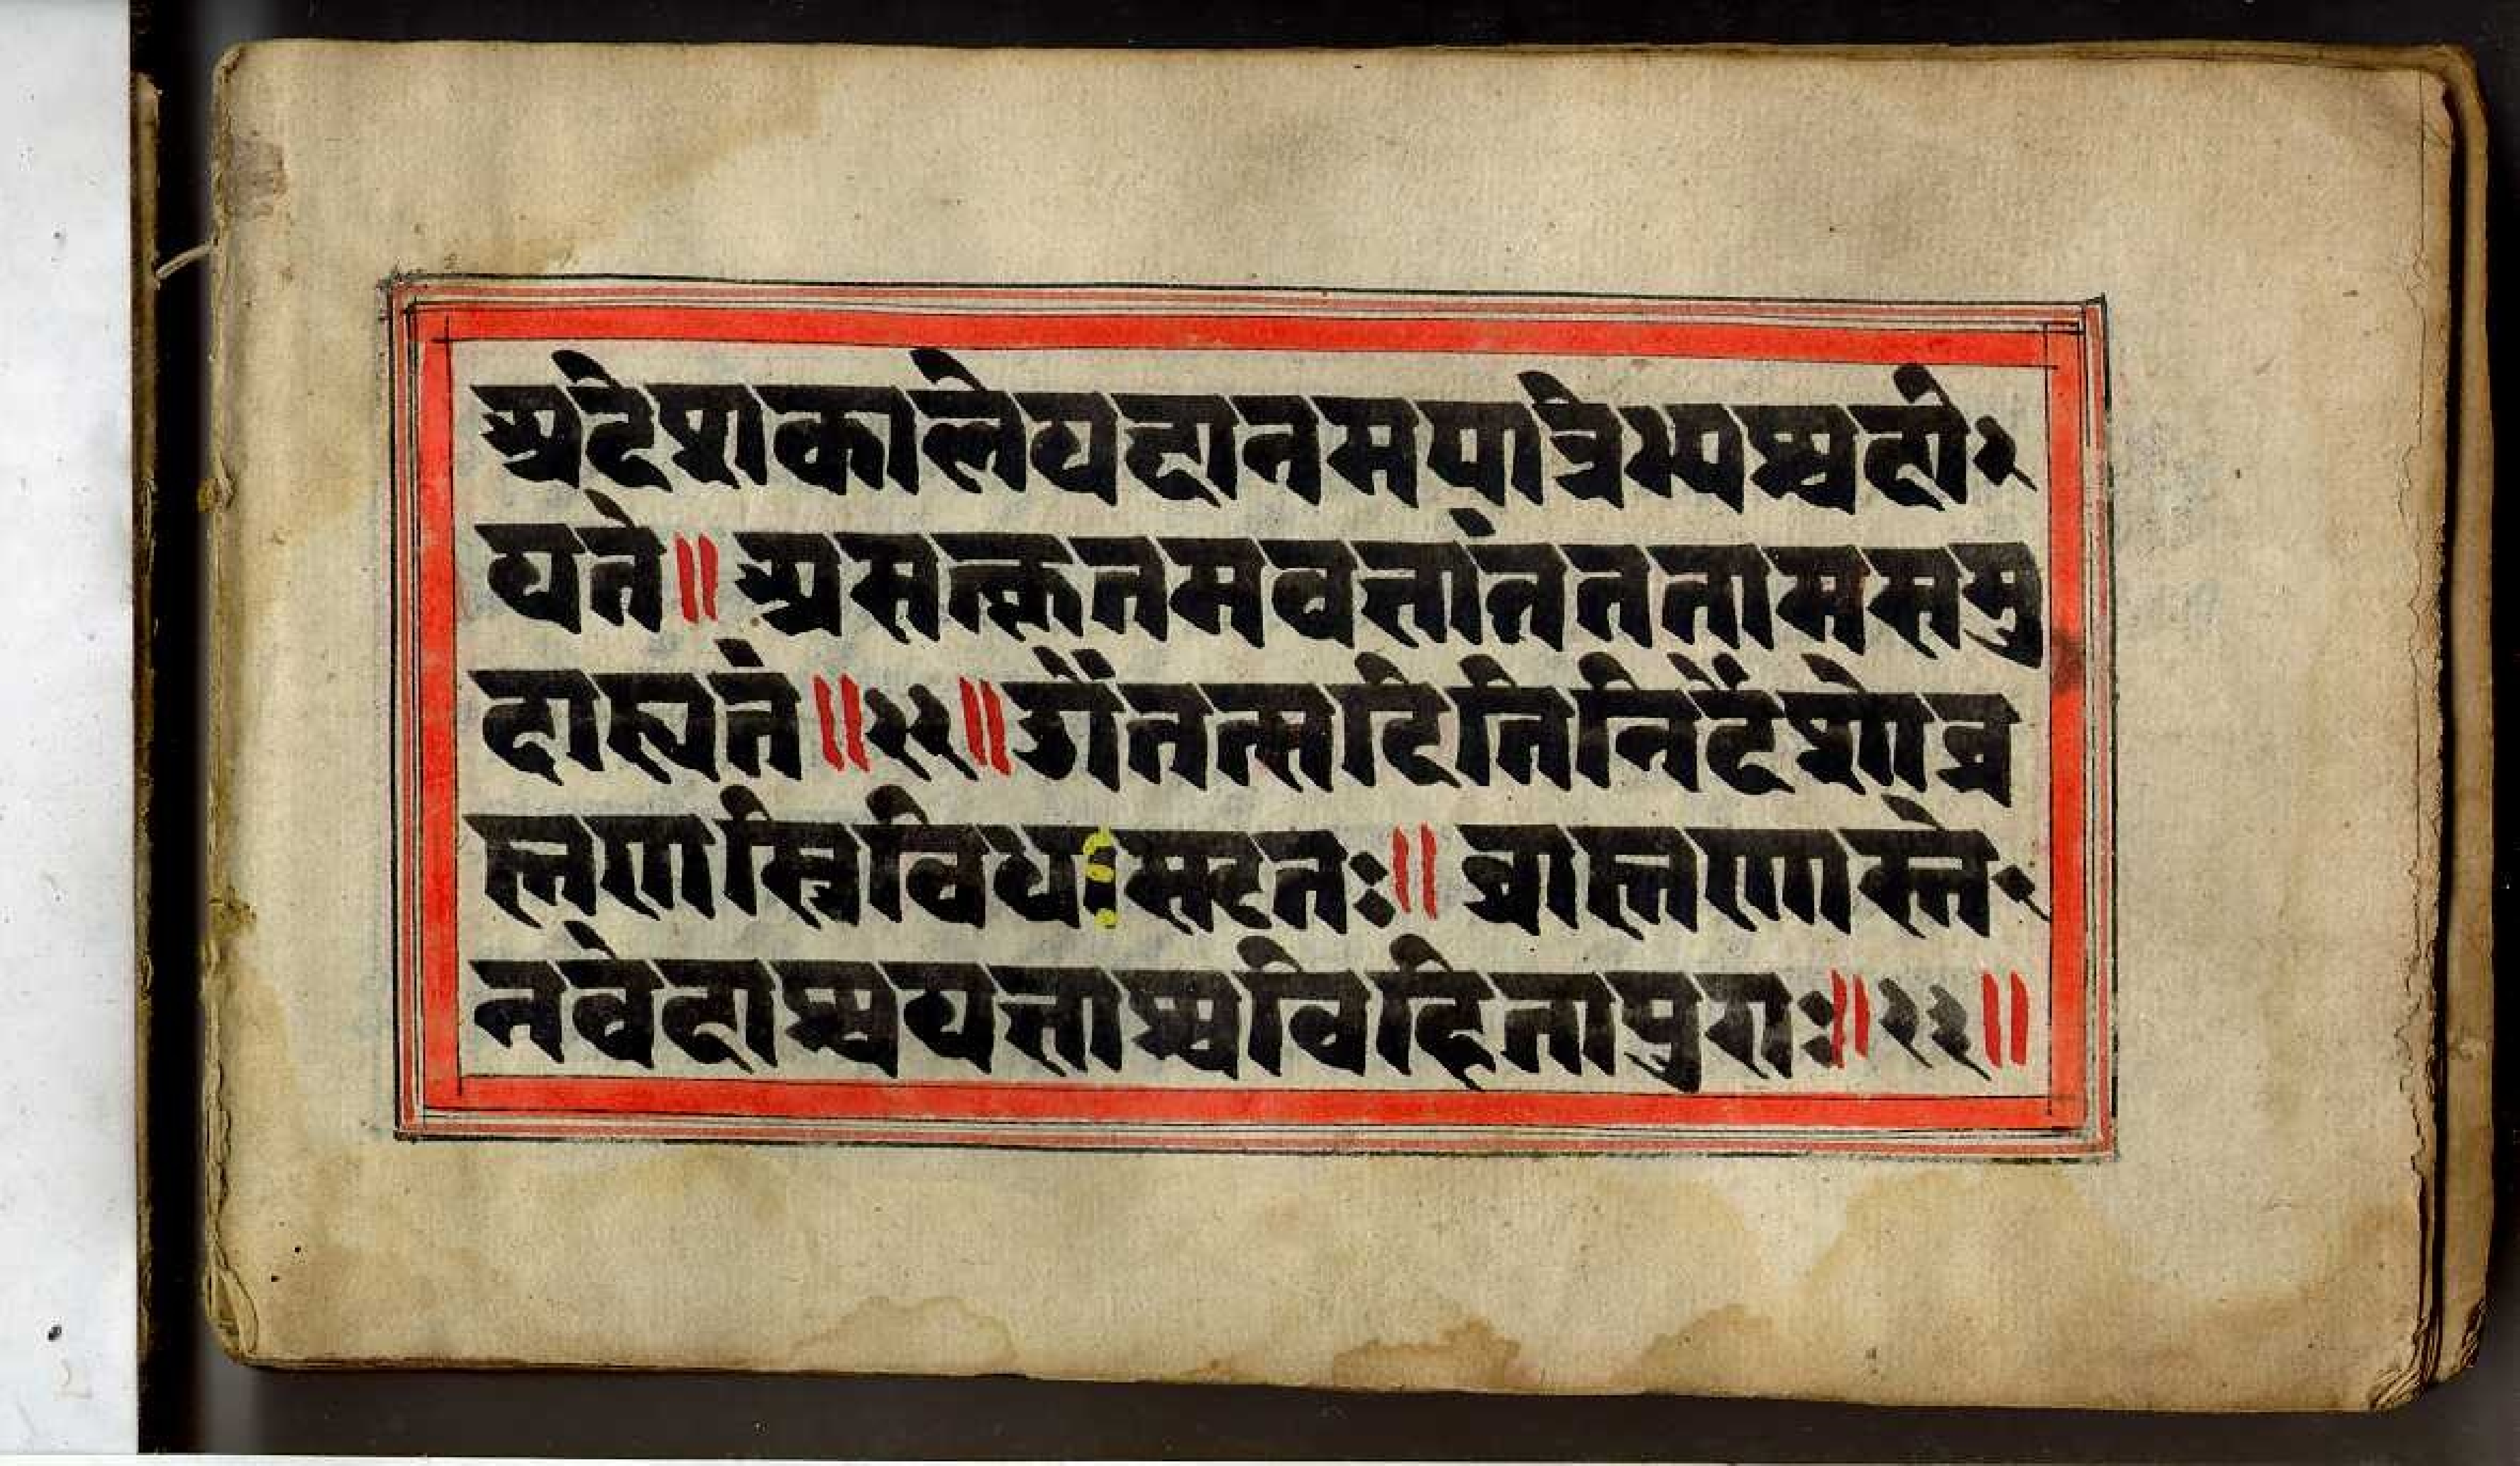 अदेशकालेयद्दानमपात्रेभ्यश्चदीः
यते॥असत्कृतमवज्ञातंतत्तामसमु
दाहृतं॥२२॥ॐतत्सदितिनिर्देशोब्र
ह्मणस्त्रिविधःस्मृतः॥ब्राह्मणास्तेः
नवेदाश्चयज्ञाश्चविहितापुराः॥२३॥